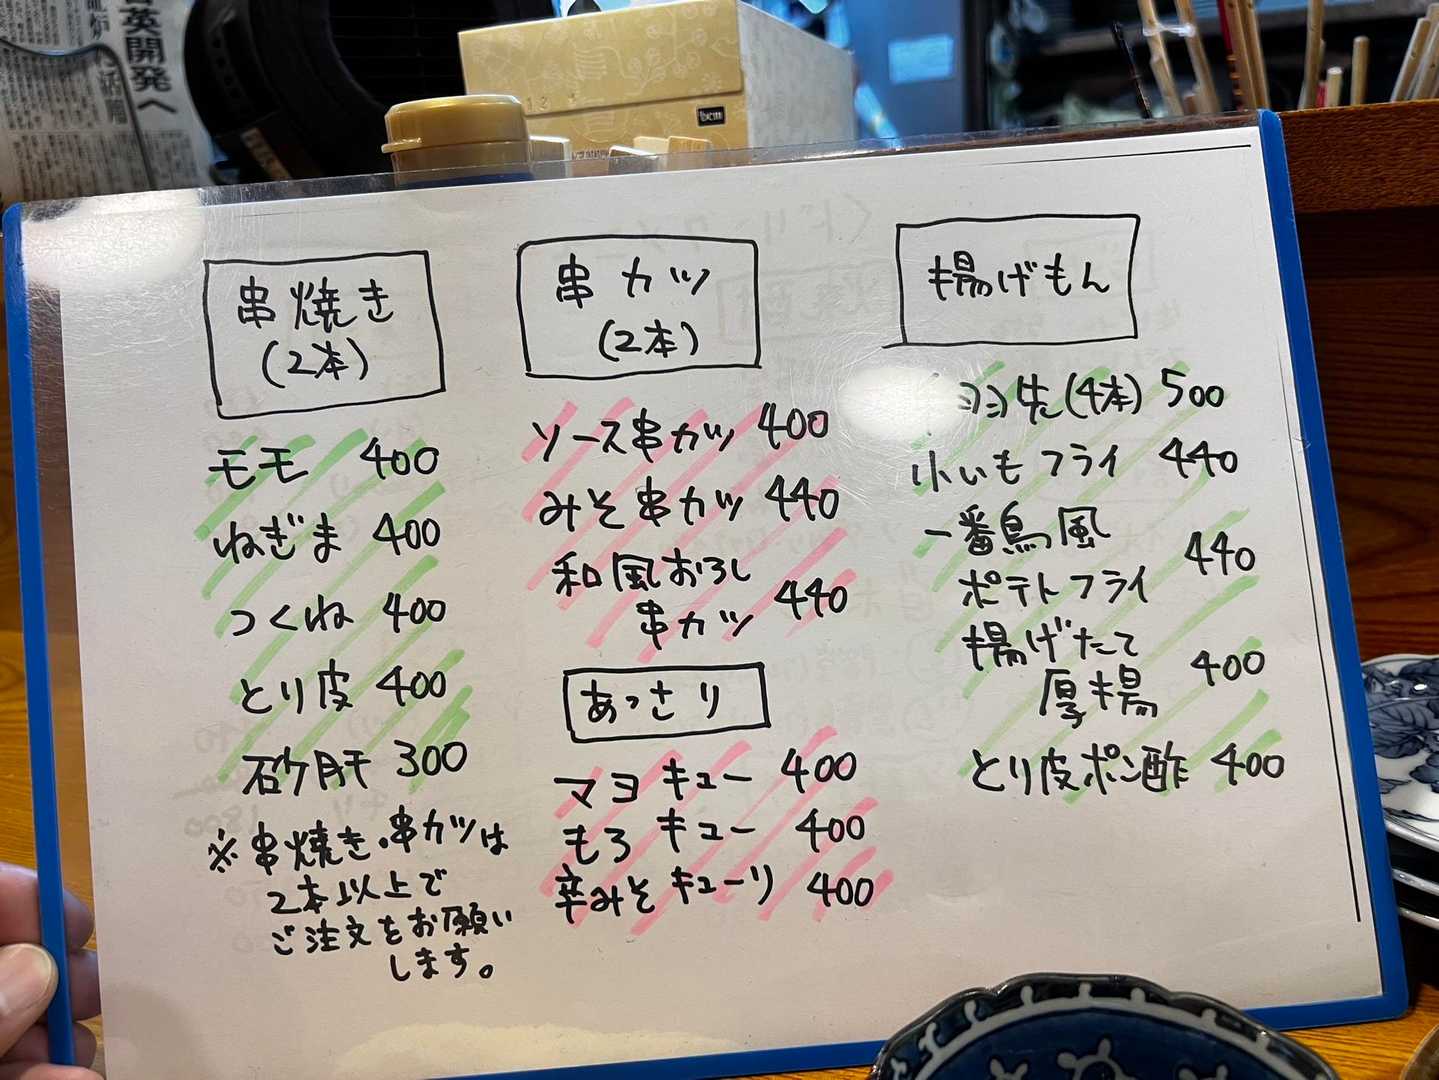 英開発へ
串焼き
(2本)
モモ 400
ねぎま 400
つくね 400
とり皮 400
砂肝 300
※串焼き・串カツは
2本以上で
ご注文をお願い
します。
串カツ
(2本)
ソース串カツ 400
みそ串カツ 440
和風おろし
串カツ 440
あっさり
マヨキュー 400
もろキュー 400
辛みそキューリ 400
揚げもん
(4本) 500
小いもフライ 440
一番鳥風
ポテトフライ 440
揚げたて
厚揚 400
とり皮ポン酢 400